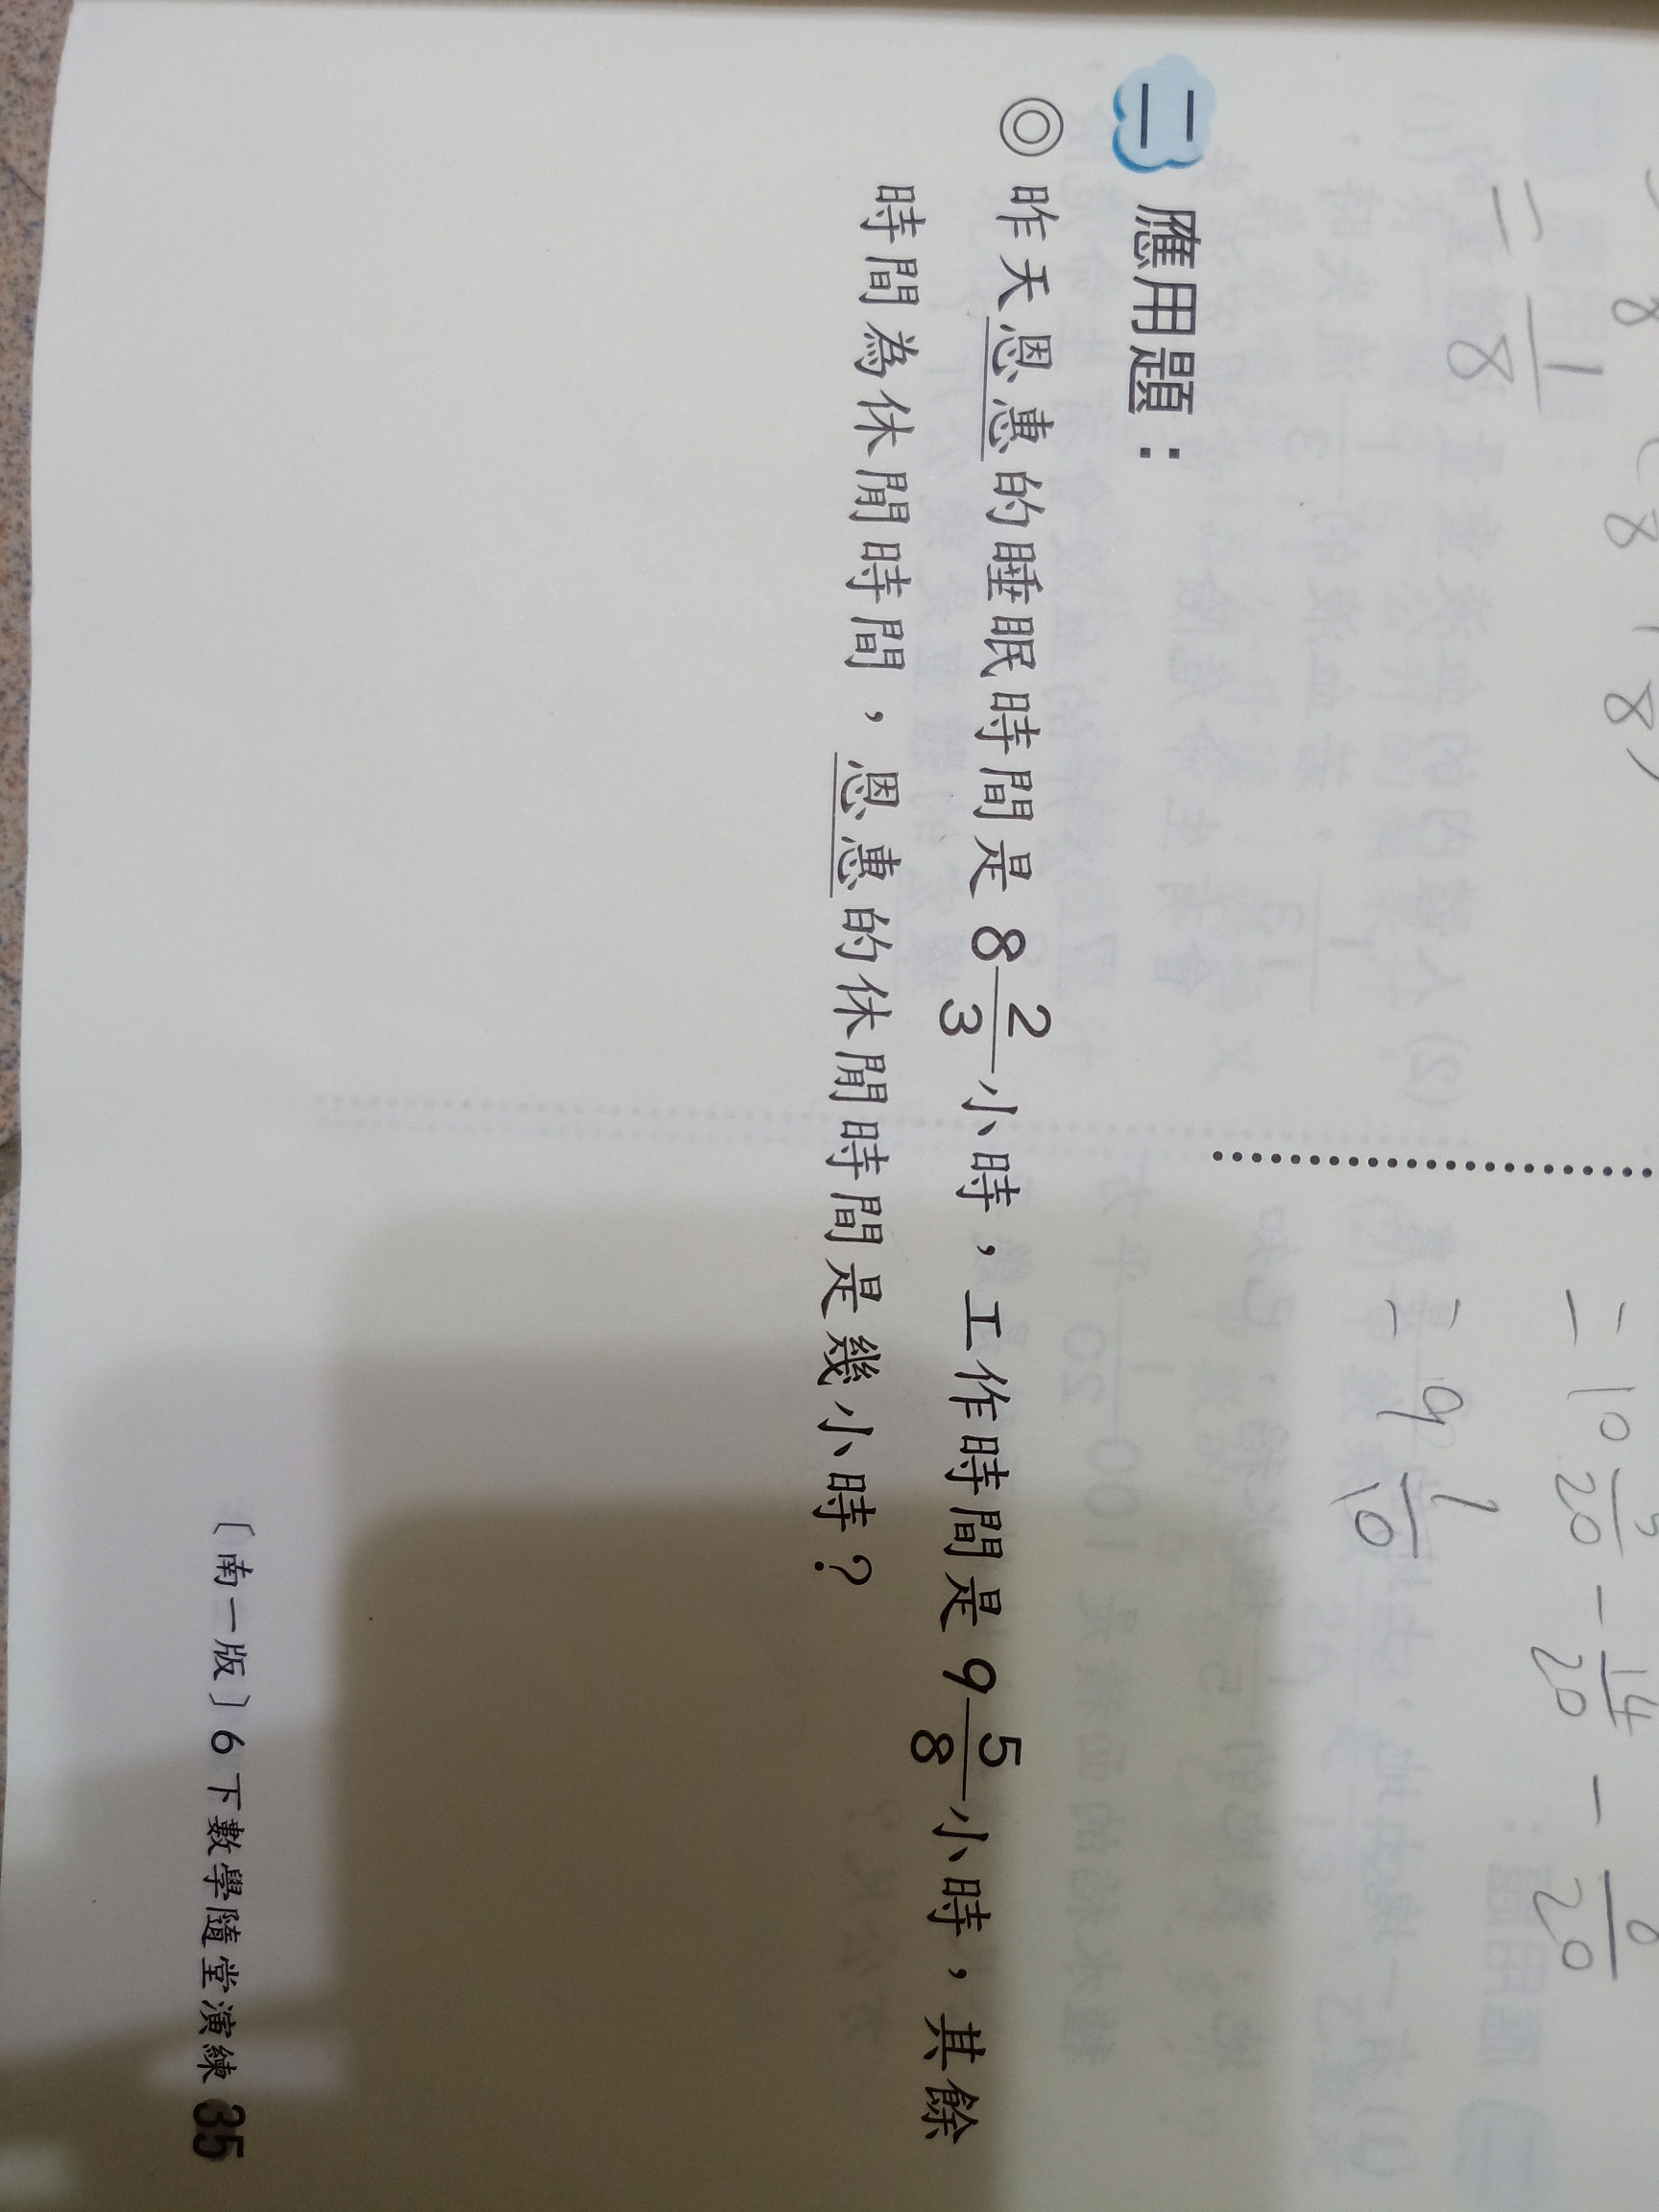 = 10 5/20 - 14/20 - 6/20
= 1/8
= 9 1/10
二 應用題：
◎ 昨天恩惠的睡眠時間是 8 2/3 小時，工作時間是 9 5/8 小時，其餘
時間為休閒時間，恩惠的休閒時間是幾小時？
〔南一版〕6 下數學隨堂演練 35